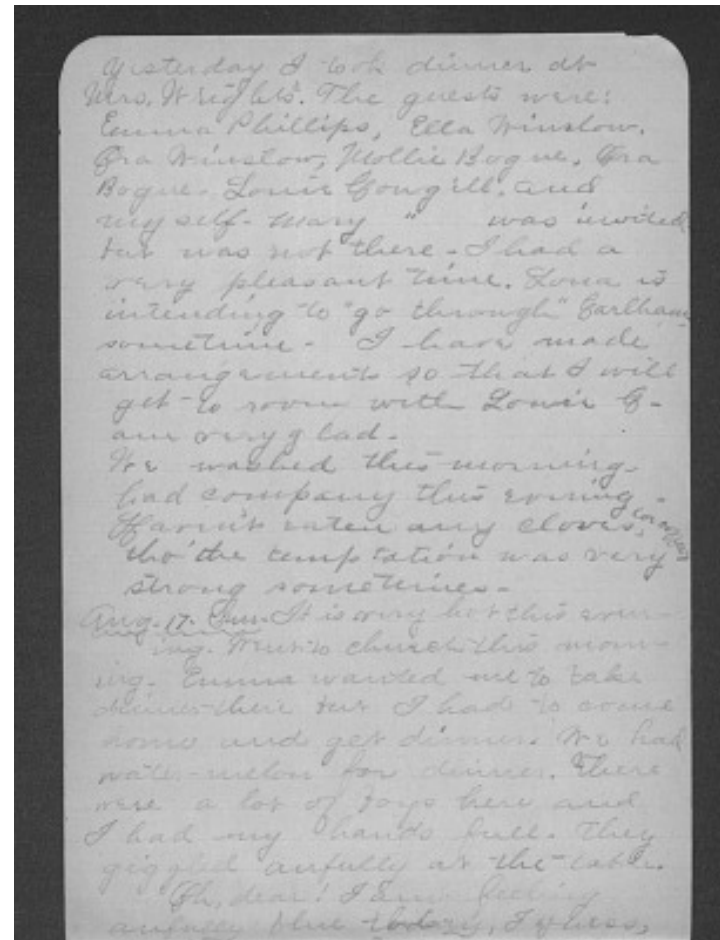 Yesterday I took dinner at
Mrs. Wrights. The guests were:
Emma Phillips, Ella Winslow,
Ora Winslow, Mollie Bogue, Ora
Bogue. Louie Cowgill. and
myself. Mary " was invited
but was not there. I had a
very pleasant time. Loua is
intending to "go through" Earlham
sometime. I have made
arrangements so that I will
get to room with Louie C.
am very glad.
We washed this morning.
had company this evening.
Haven't eaten any cloves,
tho' the temptation was very
strong sometimes.
Aug. 17. Sun. It is very hot this even-
ing. Went to church this morn-
ing. Emma wanted me to take
dinner there but I had to come
home and get dinner. We had
water-melon for dinner. There
were a lot of boys here and
I had my hands full. They
giggled awfully at the table.
Oh, dear! I am feeling
awfully blue today, I guess,